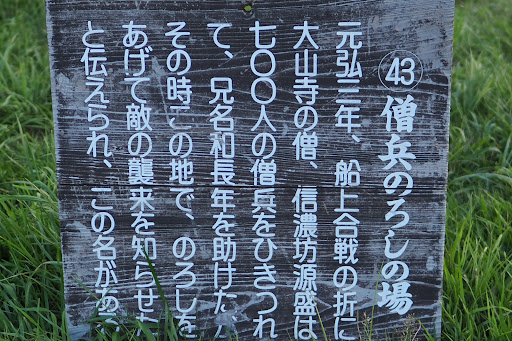 ㊸僧兵のろしの場
元弘三年、船上合戦の折に
大山寺の僧、信濃坊源盛は
七〇〇人の僧兵をひきつれ
て、兄名和長年を助けたが
その時この地で、のろしを
あげて敵の襲来を知らせた
と伝えられ、この名がある